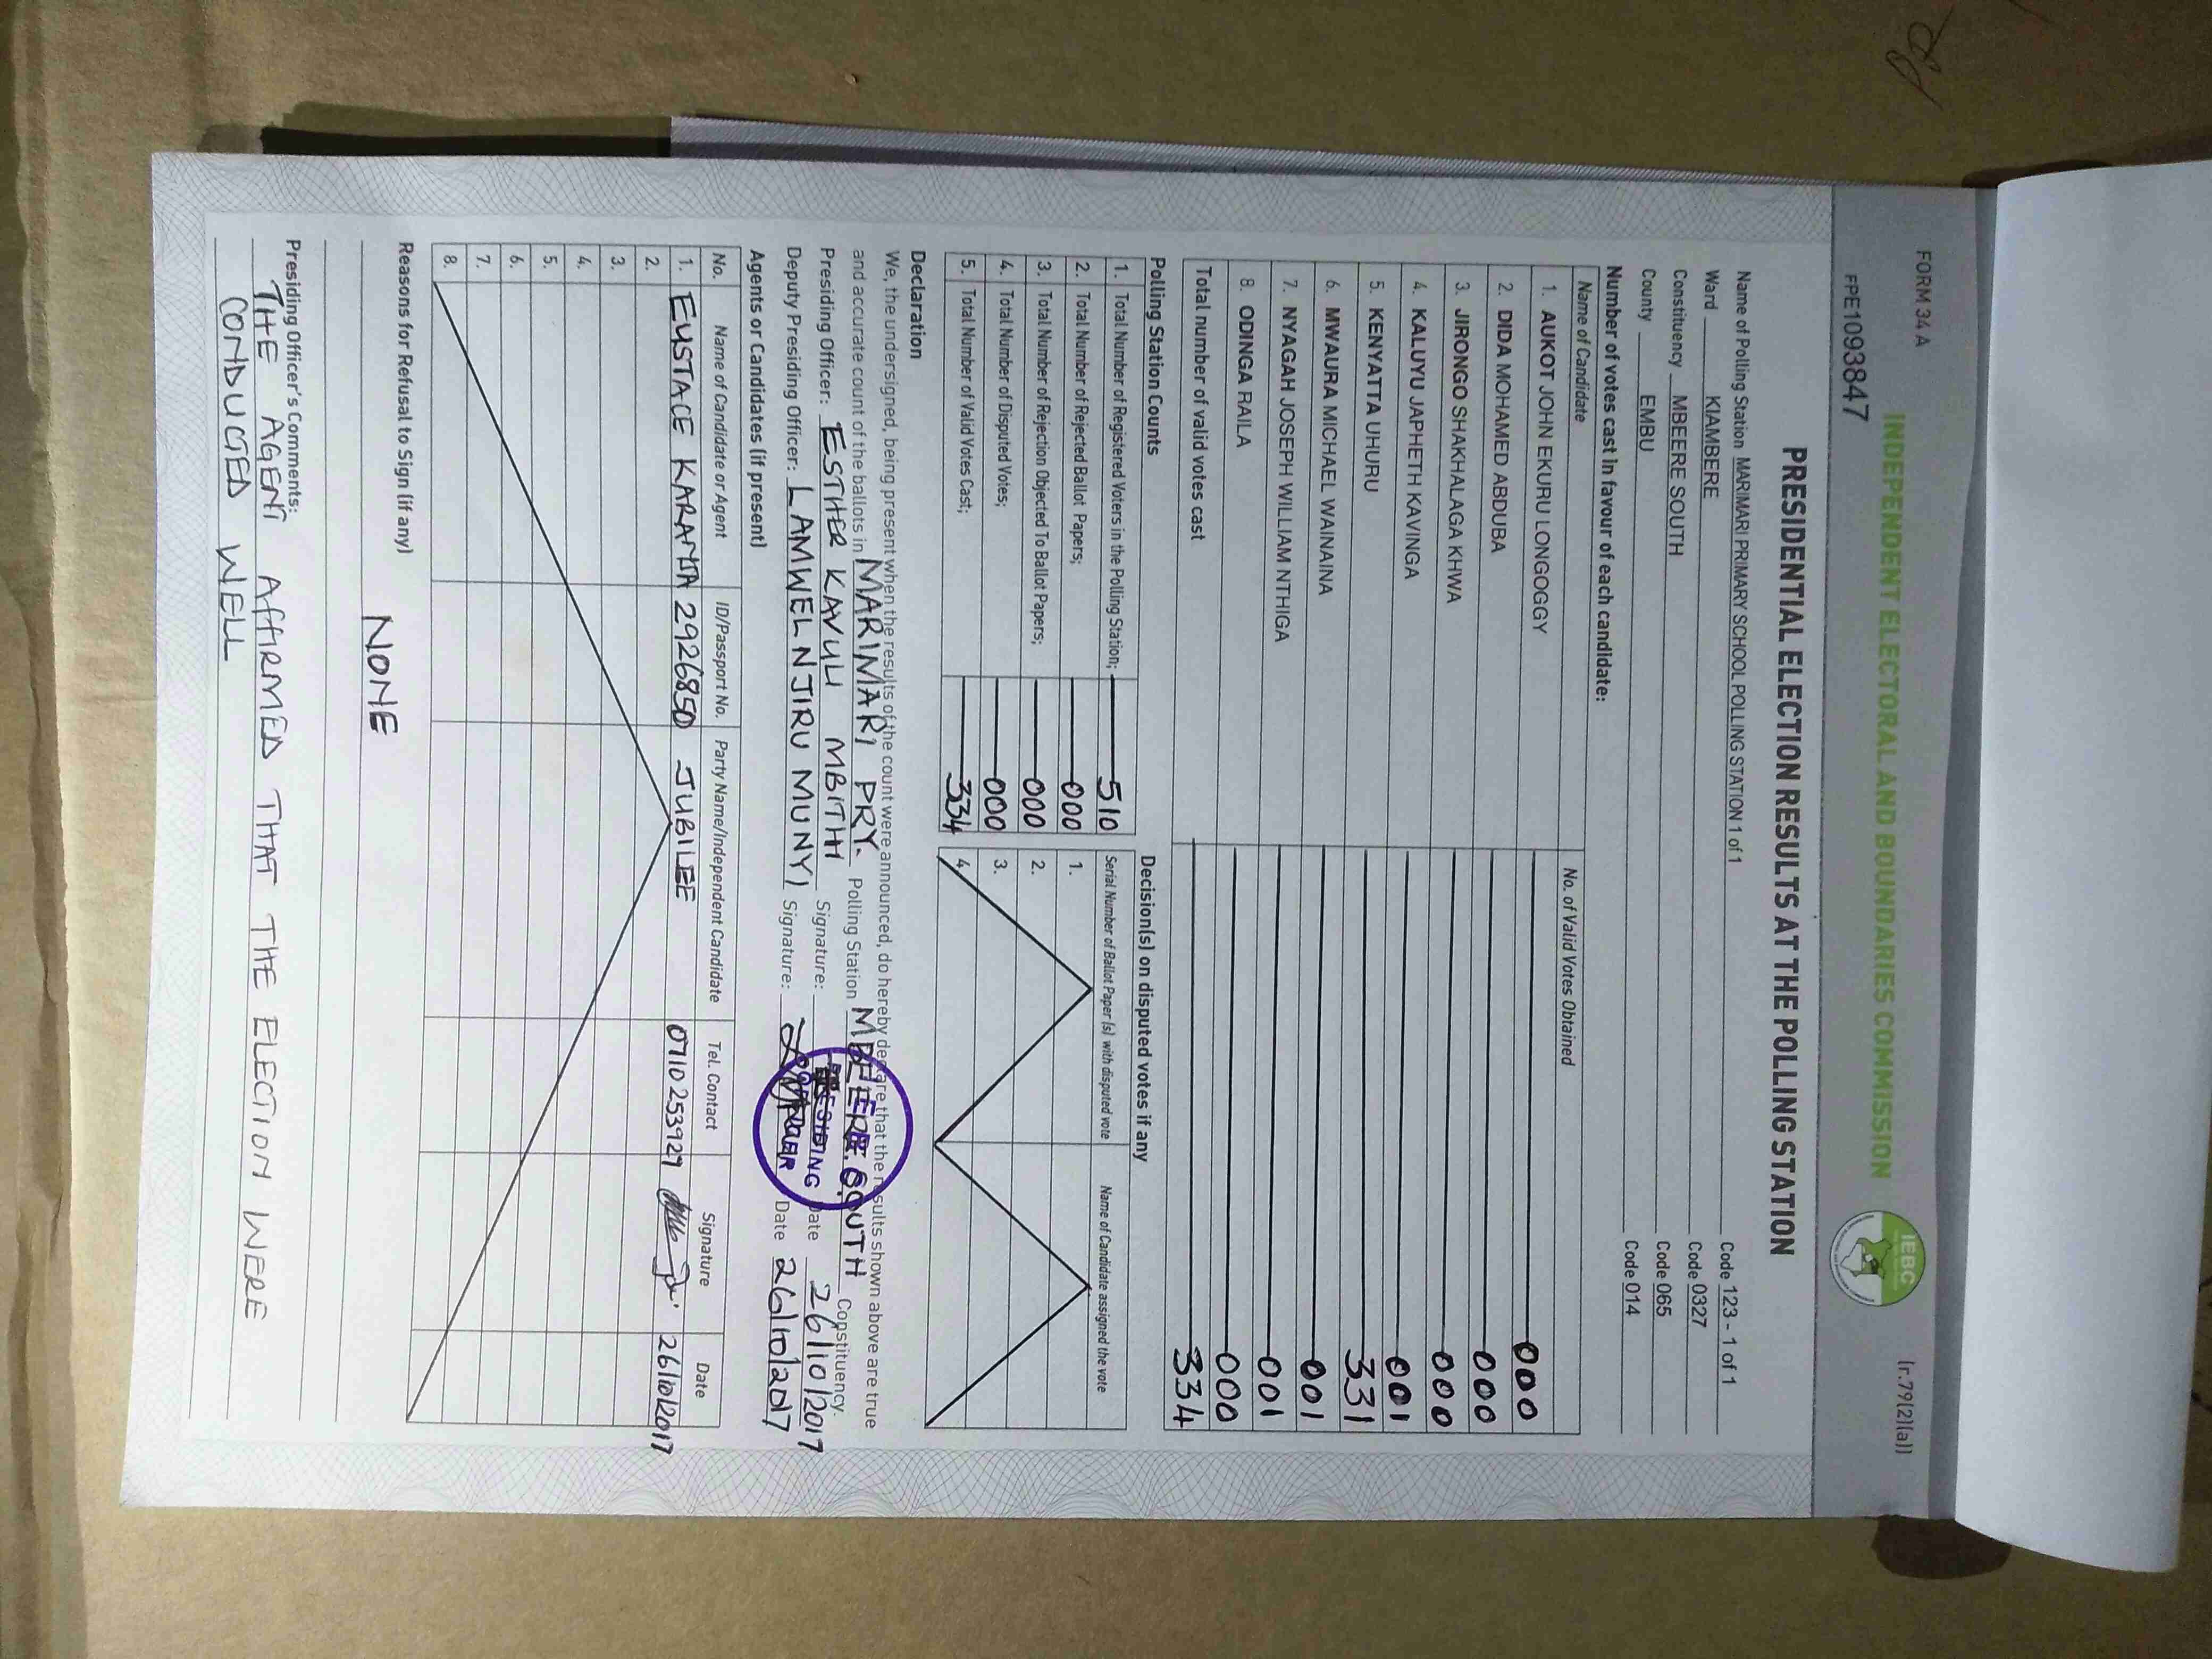 FORM 34 A
(r.79(2)(a))
INDEPENDENT ELECTORAL AND BOUNDARIES COMMISSION
IEBC
FPE1093847
PRESIDENTIAL ELECTION RESULTS AT THE POLLING STATION
Name of Polling Station MARIMARI PRIMARY SCHOOL POLLING STATION 1 of 1 Code 123 - 1 of 1
Ward KIAMBERE Code 0327
Constituency MBEERE SOUTH Code 065
County EMBU Code 014
Number of votes cast in favour of each candidate:
Name of Candidate No. of Valid Votes Obtained
1. AUKOT JOHN EKURU LONGOGGY 000
2. DIDA MOHAMED ABDUBA 000
3. JIRONGO SHAKHALAGA KHWA 000
4. KALUYU JAPHETH KAVINGA 001
5. KENYATTA UHURU 331
6. MWAURA MICHAEL WAINAINA 001
7. NYAGAH JOSEPH WILLIAM NTHIGA 001
8. ODINGA RAILA 000
Total number of valid votes cast 334
Polling Station Counts
1. Total Number of Registered Voters in the Polling Station; 510
2. Total Number of Rejected Ballot Papers; 000
3. Total Number of Rejection Objected To Ballot Papers; 000
4. Total Number of Disputed Votes; 000
5. Total Number of Valid Votes Cast; 334
Decision(s) on disputed votes if any
Serial Number of Ballot Paper (s) with disputed vote Name of Candidate assigned the vote
1.
2.
3.
4.
Declaration
We, the undersigned, being present when the results of the count were announced, do hereby declare that the results shown above are true
and accurate count of the ballots in MARIMARI PRY. Polling Station MBEERE SOUTH Constituency.
Presiding Officer: ESTHER KAVULI MBITHI Signature: Date 26/10/2017
Deputy Presiding Officer: LAMWEL NJIRU MUNYI Signature: Date 26/10/2017
PRESIDING
Agents or Candidates (if present)
No. Name of Candidate or Agent ID/Passport No. Party Name/Independent Candidate Tel. Contact Signature Date
1. EUSTACE 2926850 JUBILEE 0710253929 26/10/2017
2.
3.
4.
5.
6.
7.
8.
Reasons for Refusal to Sign (if any)
NONE
Presiding Officer's Comments:
THE AGENT AFFIRMED THAT THE ELECTION WERE
CONDUCTED WELL